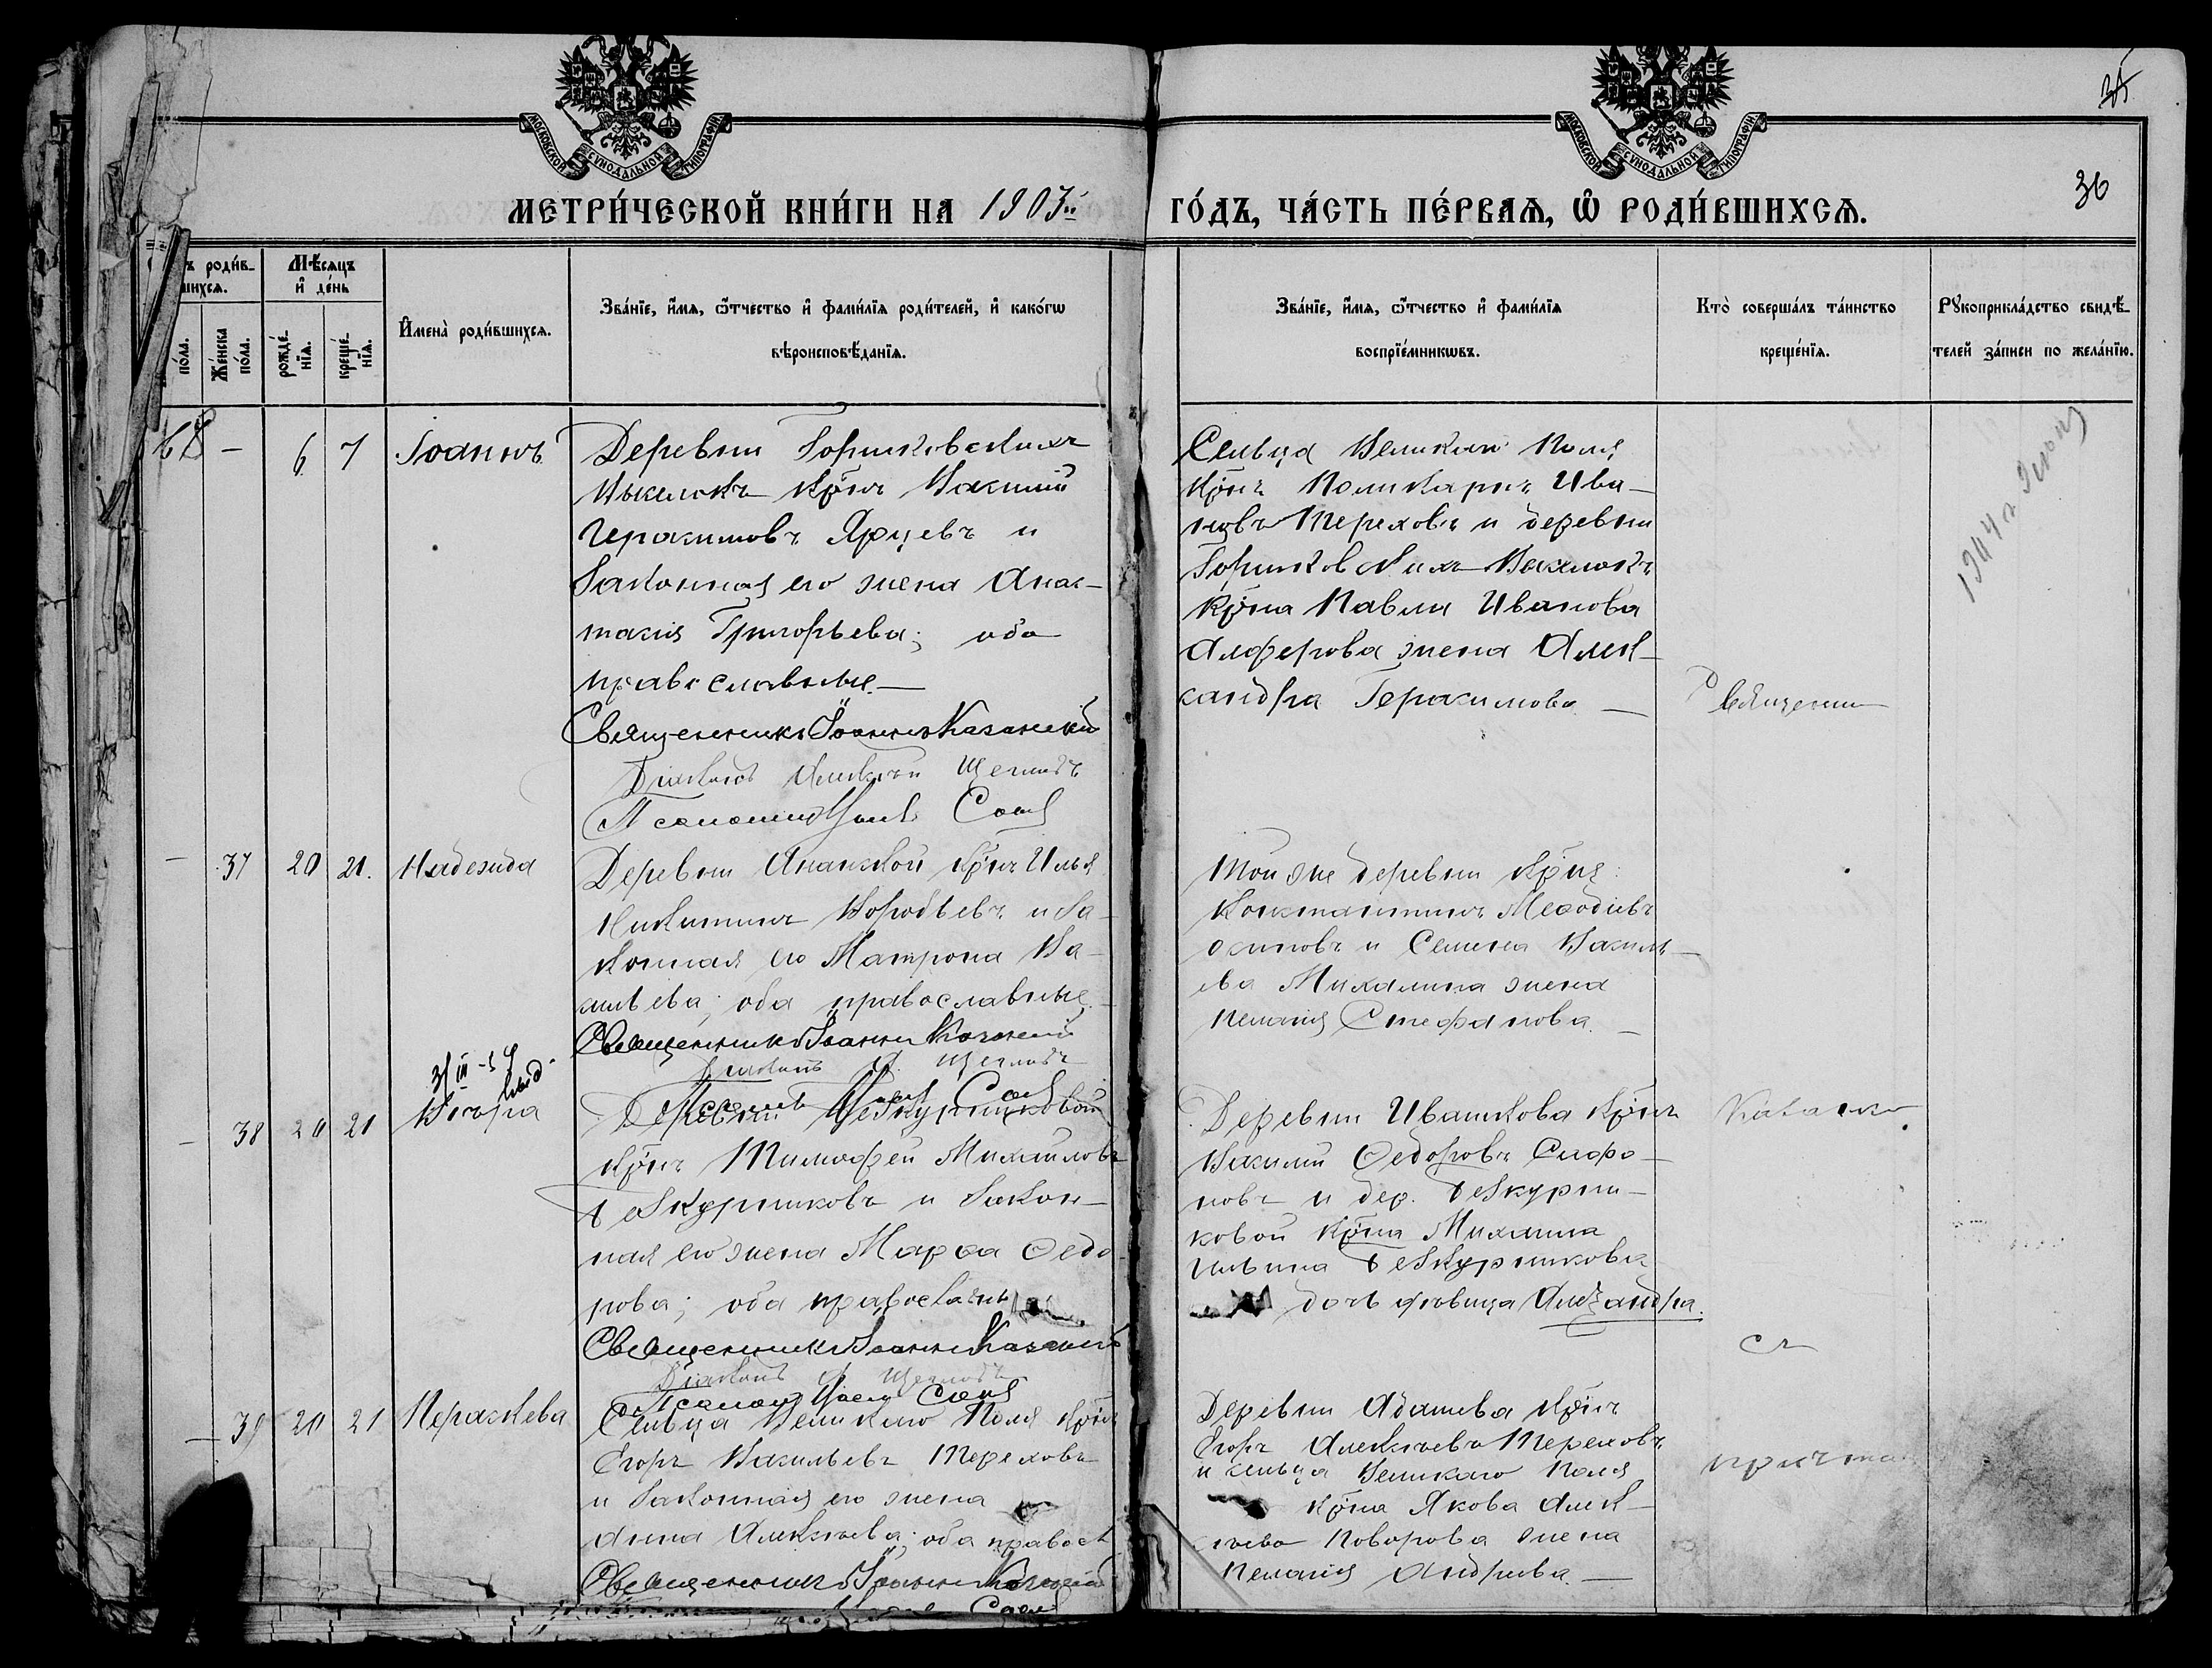 35
36
МОСКОВСКОЙ СУНОДАЛЬНОЙ ТИПОГРАФІИ
МОСКОВСКОЙ СУНОДАЛЬНОЙ ТИПОГРАФІИ
МЕТРИ́ЧЕСКОЙ КНИ́ГИ НА 1903й
ГО́ДЪ, ЧА́СТЬ ПЕ́РВАѦ, Ѽ РОДИ́ВШИХСѦ.
ъ роди́в-
шихсѧ.
Мѣ́сѧцъ
и҆ де́нь
по́ла.
Же́нска
по́ла.
рожде́-
нїѧ.
креще́-
нїѧ.
И҆мена̀ роди́вшихсѧ.
Зва́нїе, и҆́мѧ, ѻ҆́тчество и҆ фами́лїѧ роди́телей, и҆ како́гѡ
вѣроисповѣ́данїѧ.
Зва́нїе, и҆́мѧ, ѻ҆́тчество и҆ фами́лїѧ
воспрїе́мникѡвъ.
Кто̀ соверша́лъ та́инство
креще́нїѧ.
Рꙋкоприкла́дство свидѣ́-
телей за́писи по жела́нїю.
68 - 6 7 Іоаннъ
Деревни Горшковскихъ
Выселокъ кр̃нъ Василий
Герасимовъ Ярцевъ и
законная его жена Анас-
тасія Григорьева; оба
православные.—
Священникъ Іоаннъ Казанскій
Діаконъ Алексѣй Щегловъ
Псаломщикъ
Сельца Великаго Поля
кр̃нъ Поликарпъ Ива-
новъ Тереховъ и деревни
Горшковскихъ Выселокъ
кр̃на Павла Иванова
Алферова жена Алек-
сандра Герасимова —
Священни
1944 г.
- 37 20 21. Надежда
Деревни Ананской кр̃нъ Илья
Никитинъ Воробьевъ и за-
конная его Матрона Ва-
сильева; оба православные.
Священникъ Іоаннъ Казанскій
Діаконъ А. Щегловъ
Псаломщ
Той же деревни кр̃не:
Константинъ Меѳодіевъ
Осиповъ и Семена Василь-
ева Михалина жена
Пелагія Стефанова. —
31/III-54
выд.
- 38 20 21 Вѣра
Деревни Безкурниковой
кр̃нъ Тимофей Михайловъ
Безкурниковъ и закон-
ная его жена Марѳа Ѳедо-
рова; оба православн
Священникъ Іоаннъ Казанскій
Діаконъ А Щегловъ
Псаломщ
Деревни Ивашкова кр̃нъ
Василий Ѳедоровъ Сафо-
новъ и дер. Безкурни-
ковой кр̃на Михаила
Ильина Безкурникова
дочь дѣвица Александра.
Казанск
съ
- 39 20 21 Параскева
Сельца Великаго Поля кр̃нъ
Егоръ Васильевъ Тереховъ
и законная его жена
Анна Алексѣева; оба правосл
Священникъ Іоаннъ Казанскій
Деревни Абашева кр̃нъ
Егоръ Алексѣевъ Тереховъ
и сельца Великаго Поля
кр̃на Якова Алек-
сѣева Говорова жена
Пелагія Андреева. —
причтом